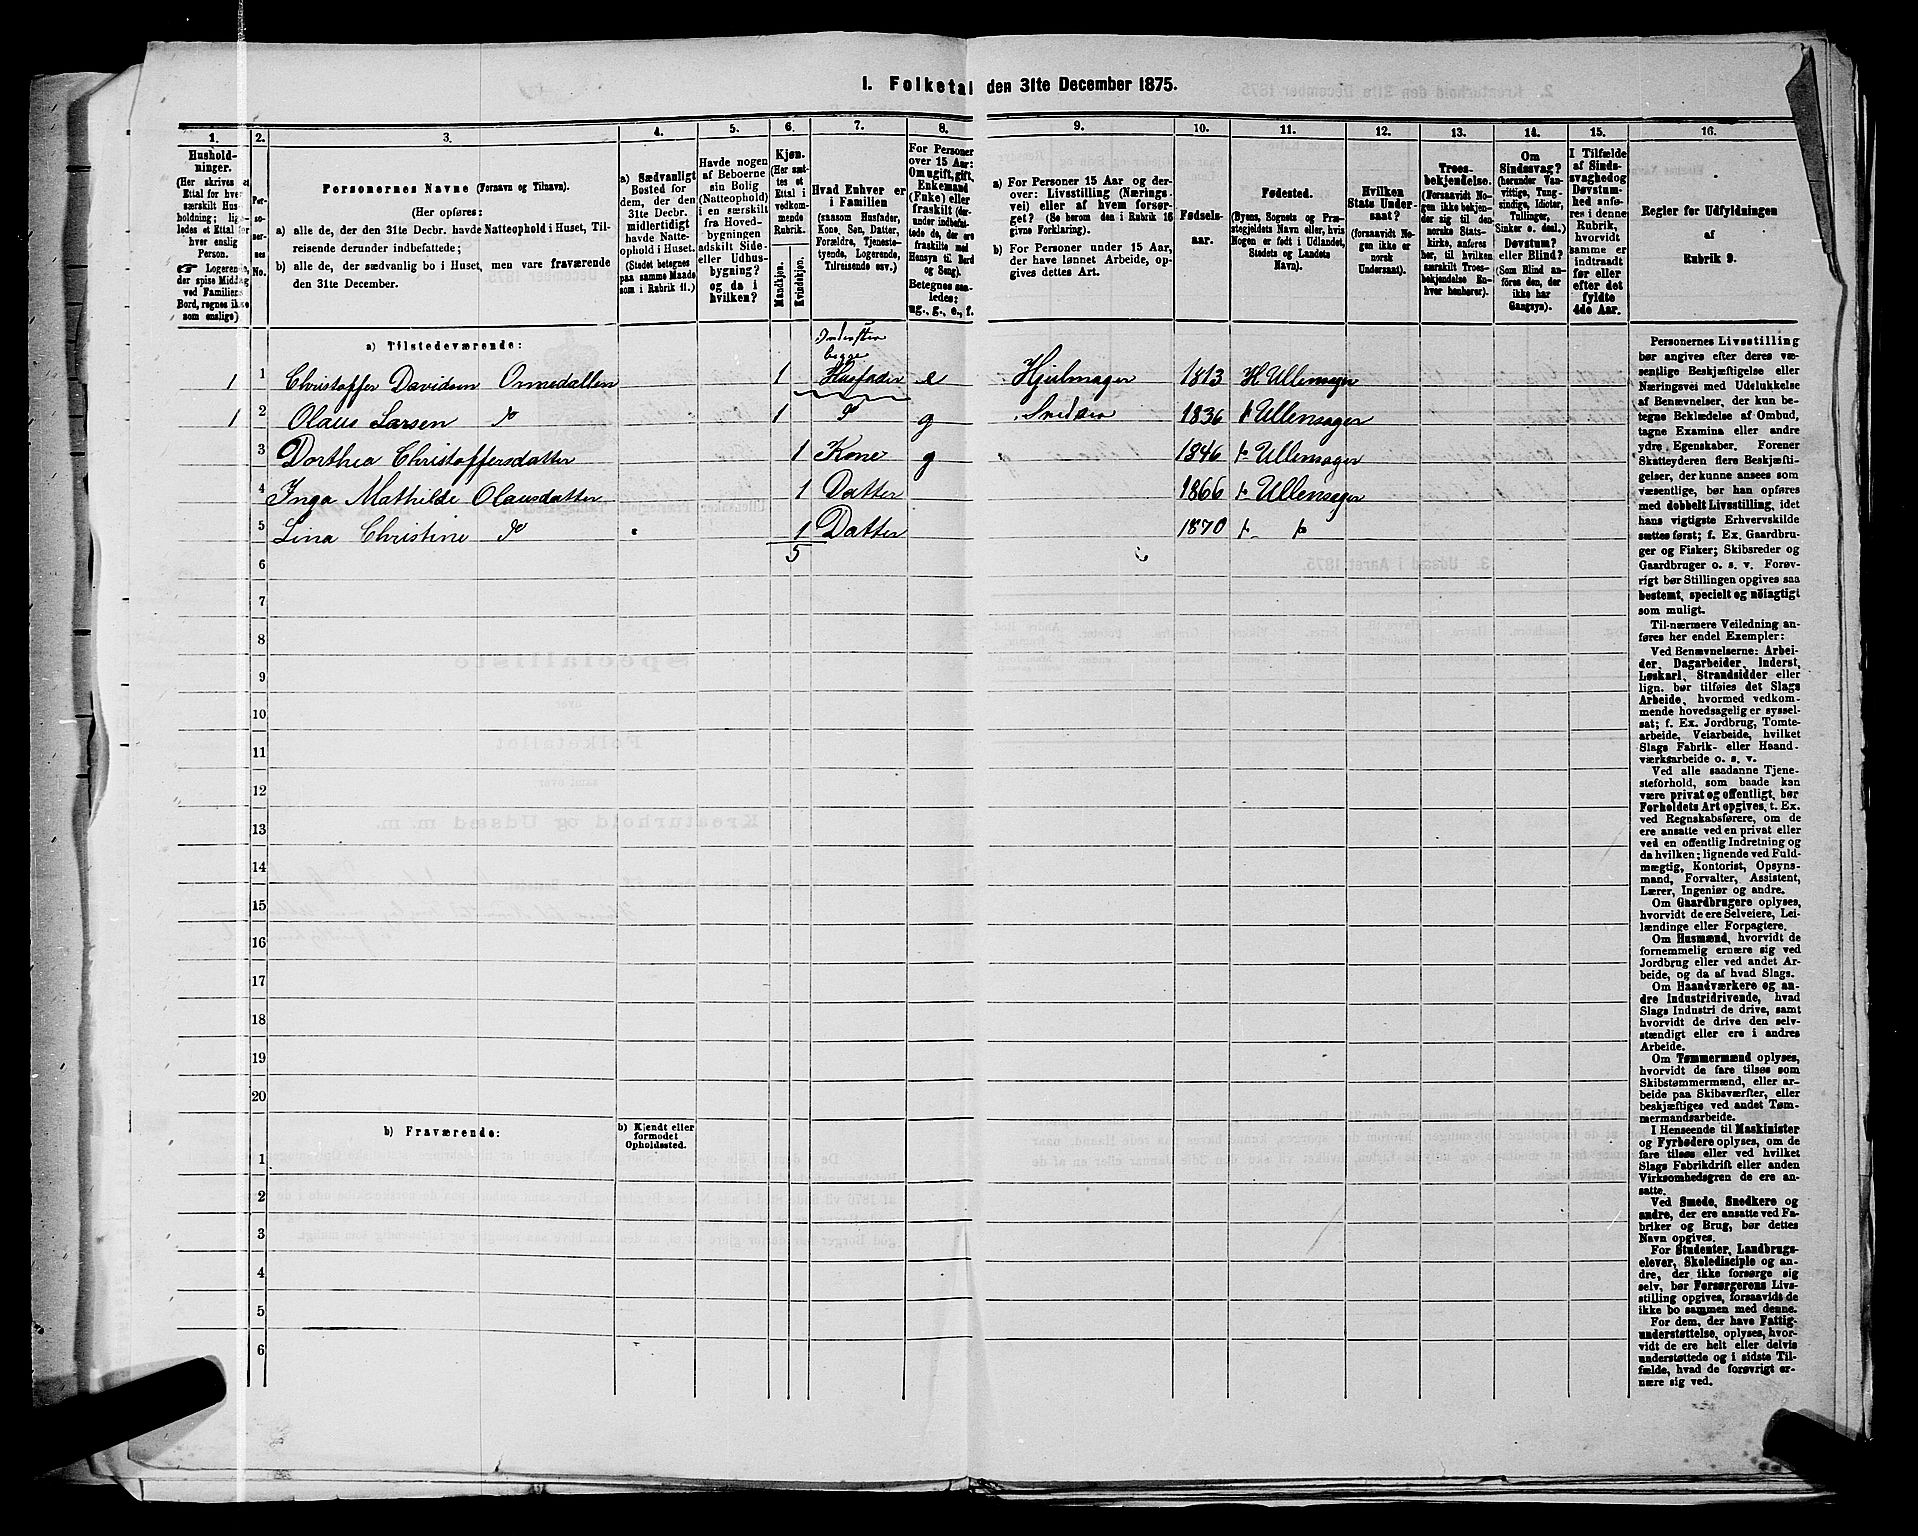 1. Folketal den 31te December 1875.
1.
Hushold-
ninger.
(Her skrives et
Ettal for hver
særskilt Hus-
holdning; lige-
ledes et Ettal for
hver enslig
Person.
Logerende,
der spise Middag
ved Familiens
Bord, regnes ikke
som enslige)
2.
Per-
so-
ner-
nes
No.
3.
Personernes Navne (Fornavn og Tilnavn).
(Her opføres:
a) alle de, der den 31te Decbr. havde Natteophold i Huset, Til-
reisende derunder indbefattede;
b) alle de, der sædvanlig bo i Huset, men vare fraværende
den 31te December.
4.
a) Sædvanligt
Bosted for
dem, der den
31te Decbr.
midlertidigt
havde Natte-
ophold i Huset.
(Stedet betegnes
paa samme Maade
som i Rubrik 11.)
5.
Havde nogen
af Beboerne
sin Bolig
(Natteophold)
i en særskilt
fra Hoved-
bygningen
adskilt Side-
eller Udhus-
bygning?
og da i
hvilken?
6.
Kjøn.
(Her sæt-
tes et
Ettal i
vedkom-
mende
Rubrik.
Mandkjøn.
Kvindekjøn.
7.
Hvad Enhver er
i Familien
(saasom Husfader,
Kone, Søn, Datter,
Forældre, Tjeneste-
tyende, Logerende,
Tilreisende osv.)
8.
For Personer
over 15 Aar:
Om ugift, gift,
Enkemand
(Enke) eller
fraskilt (der-
under indbefat-
tede de, der ere
fraskilte med
Hensyn til Bord
og Seng).
Betegnes saa-
ledes:
ug., g., e., f.
9.
a) For Personer 15 Aar og der-
over: Livsstilling (Nærings-
vei) eller af hvem forsør-
get? (Se herom den i Rubrik 16
givne Forklaring).
b) For Personer under 15 Aar,
der have lønnet Arbeide, op-
gives dettes Art.
10.
Fødsels-
aar.
11.
Fødested.
(Byens, Sognets og Præ-
stegjeldets Navn eller, hvis
Nogen er født i Udlandet,
Stedets og Landets
Navn).
12.
Hvilken
Stats Under-
saat?
(forsaavidt No-
gen ikke er
norsk
Undersaat).
13.
Troes-
bekjendelse.
(Forsaavidt No-
gen ikke bekjen-
der sig til den
norske Stats-
kirke, anføres
her, til hvilken
særskilt Troes-
bekjendelse En-
hver henhører).
14.
Om
Sindssvag?
(herunder Van-
vittige, Tung-
sindige, Idioter,
Tullinger,
Sinker o. desl.)
Døvstum?
eller Blind?
(Som Blind an-
føres den, der
ikke har
Gangsyn).
15.
I Tilfælde
af Sinds-
svaghed og
Døvstum-
hed anfø-
res i denne
Rubrik,
hvorvidt
samme er
indtraadt
før eller
efter det
fyldte
4de Aar.
16.
Regler for Udfyldningen
af
Rubrik 9.
a) Tilstedeværende:
begge
1 1 Christoffer Davidsen Ormedallen 1 Husfader e Hjulmager 1813 Ullensager
1 2 Olaus Larsen 1 g 1836 Ullensager
3 Dorthea Christoffersdatter 1 Kone g 1846 Ullensager
4 Inga Mathilde Olausdatter 1 Datter 1866 Ullensager
5 Lina Christine 1 Datter 1870
5
6
7
8
9
10
11
12
13
14
15
16
17
18
19
20
b) Fraværende:
b) Kjendt eller
formodet
Opholdssted.
1
2
3
4
5
6
Personernes Livsstilling
bør angives efter deres væ-
sentlige Beskjæftigelse eller
Næringsvei med Udelukkelse
af Benævnelser, der kun be-
tegne Beklædelse af Ombud,
tagne Examina eller andre
ydre Egenskaber. Forener
Skatteyderen flere Beskjæfti-
gelser, der kunne ansees som
væsentlige, bør han opføres
med dobbelt Livsstilling, idet
hans vigtigste Erhvervskilde
sættes først; f. Ex. Gaardbru-
ger og Fisker; Skibsreder og
Gaardbruger o. s. v. Forøv-
rigt bør Stillingen opgives saa
bestemt, specielt og nöiagtigt
som muligt.
Til nærmere Veiledning an-
føres her endel Exempler:
Ved Benævnelserne: Arbei-
der, Dagarbeider, Inderst,
Løskarl, Strandsidder eller
lign. bør tilføies det Slags
Arbeide, hvormed vedkom-
mende hovedsagelig er syssel-
sat; f. Ex. Jordbrug, Tomte-
arbeide, Veiarbeide, hvilket
Slags Fabrik- eller Haand-
værksarbeide o. s. v.
Ved alle saadanne Tjene-
steforhold, som baade kan
være privat og offentligt, bør
Forholdets Art opgives, t. Ex.
ved Regnskabsførere, om de
ere ansatte ved en privat eller
ved en offentlig Indretning og
da hvilken; lignende ved Fuld-
mægtig, Kontorist, Opsyns-
mand, Forvalter, Assistent,
Lærer, Ingeniør og andre.
Om Gaardbrugere oplyses,
hvorvidt de ere Selveiere, Lei-
lændinge eller Forpagtere.
Om Husmænd, hvorvidt de
fornemmelig ernære sig ved
Jordbrug eller ved andet Ar-
beide, og da af hvad Slags.
Om Haandværkere og an-
dre Industridrivende, hvad
Slags Industri de drive, samt
hvorvidt de drive den selv-
stændigt eller ere i andres
Arbeide.
Om Tømmermænd oplyses,
hvorvidt de fare tilsøs som
Skibstømmermænd, eller ar-
beide paa Skibsværfter, eller
beskjæftiges ved andet Tøm-
mermandsarbeide.
I Henseende til Maskinister
og Fyrbødere oplyses, om de
fare tilsøs eller ved hvilket
Slags Fabrikdrift eller anden
Virksomhedsgren de ere an-
satte.
Ved Smede, Snedkere og
andre, der ere ansatte ved Fa-
briker og Brug, bør dettes
Navn opgives.
For Studenter, Landbrugs-
elever, Skoledisciple og an-
dre, der ikke forsørge sig
selv, bør Forsørgerens Livs-
stilling opgives, forsaavidt de
ikke bo sammen med denne.
For dem, der have Fattig-
understøttelse, oplyses, hvor-
vidt de ere helt eller delvis
understøttede og i sidste Til-
fælde, hvad de forøvrigt er-
nære sig ved.